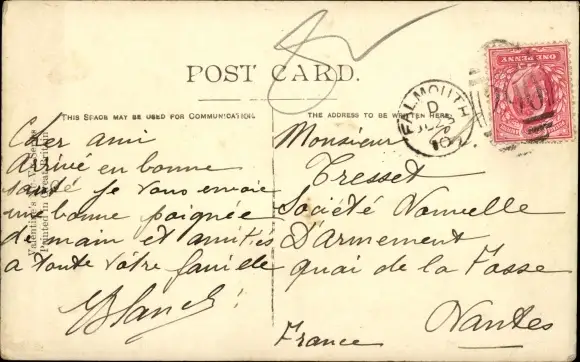 POST CARD.
THIS SPACE MAY BE USED FOR COMMUNICATION.
THE ADDRESS TO BE WRITTEN HERE
Valentine's Series
Printed in Great Britain
ONE PENNY
FALMOUTH
D
10
Cher ami
Arrivé en bonne
santé je vous envoie
une bonne poignée
de main et amitiés
a toute votre famille
Monsieur
Tresset
Société Nouvelle
D'armement
quai de la Fosse
Nantes
France